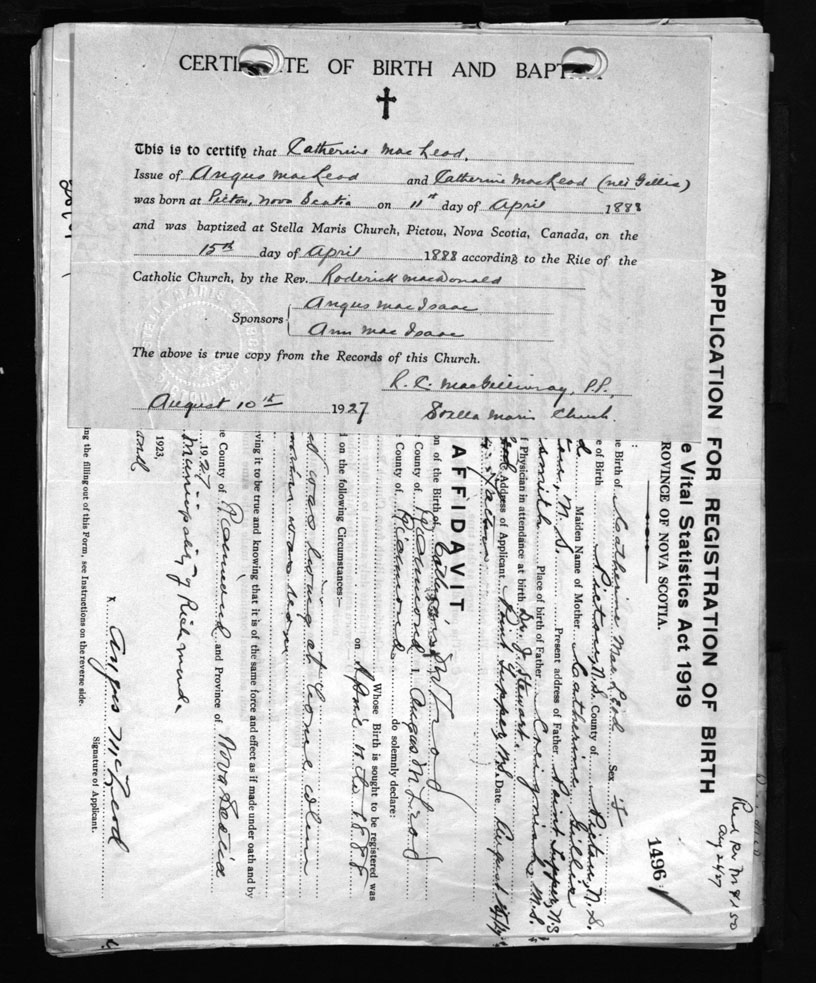 CERTI TE OF BIRTH AND BAPT
This is to certify that Catherine MacLeod,
Issue of Angus MacLeod and Catherine MacLeod (neé Gillis)
was born at Pictou, Nova Scotia on 11th day of April 1888
and was baptized at Stella Maris Church, Pictou, Nova Scotia, Canada, on the
15th day of April 1888 according to the Rite of the
Catholic Church, by the Rev. Roderick MacDonald
Sponsors { Angus MacIsaac
Ann MacIsaac
The above is true copy from the Records of this Church.
R. C. MacGillivray, P.P.,
August 10th 1927 Stella Maris Church.
APPLICATION FOR REGISTRATION OF BIRTH
e Vital Statistics Act 1919
ROVINCE OF NOVA SCOTIA.
1496
Aug 24 27
e Birth of Catherine MacLeod Sex F
e of Birth Pictou, N.S. County of Pictou, N.S.
d Maiden Name of Mother Catherine Gillis
N.S. Present address of Father Point Tupper, N.S.
smith Place of birth of Father Craignish, N.S.
f Physician in attendance at birth Dr. J. Stewart.
Address of Applicant Point Tupper, N.S. Date August
Father
AFFIDAVIT,
on of the Birth of
County of Richmond I Angus McLeod
e County of Richmond do solemnly declare:
Whose Birth is sought to be registered was
on April 11th 1888
d on the following Circumstances:—
was living at home when
was born
eving it to be true and knowing that it is of the same force and effect as if made under oath and by
e County of Richmond and Province of Nova Scotia
1927
Municipality of Richmond
1923,
x Angus McLeod
Signature of Applicant.
ing the filling out of this Form, see Instructions on the reverse side.